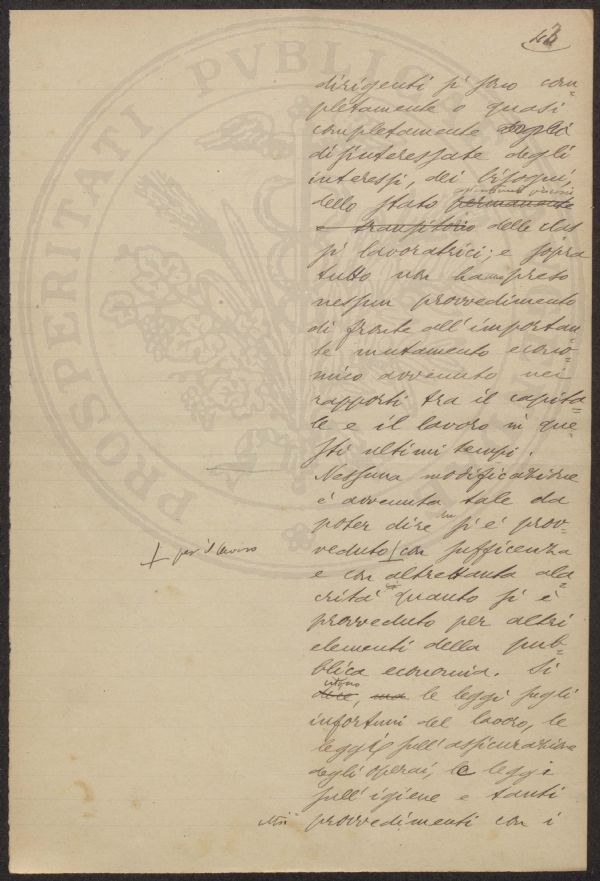 dirigenti si sono com-
pletamente o quasi
completamente
disinteressate degli
interessi, dei bisogni,
dello stato permanente
e transitorio delle clas
si lavoratrici; e sopra
tutto non hanno preso
nessun provvedimento
di fronte all'importan
te mutamento econo=
mico avvenuto nei
rapporti tra il capita=
le e il lavoro in que=
sti ultimi tempi.
Nessuna modificazione
è avvenuta tale da
poter dire si è prov=
veduto con sufficenza
+ per il lavoro
e con altrettanta ala=
crità quanto si è
provveduto per altri
elementi della pub=
blica economia. Si
citano
dice, ma le leggi sugli
infortuni del lavoro, le
leggi sull'assicurazione
degli operai, le leggi
sull'igiene e tanti
provvedimenti con i
PROSPERITATI PVBLICAE